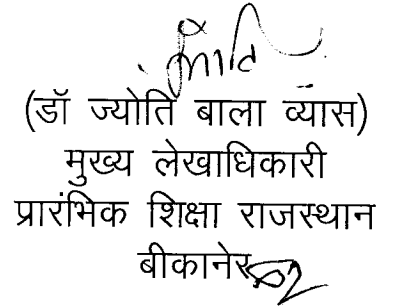 ज्योति
(डॉ ज्योति बाला व्यास)
मुख्य लेखाधिकारी
प्रारंभिक शिक्षा राजस्थान
बीकानेर